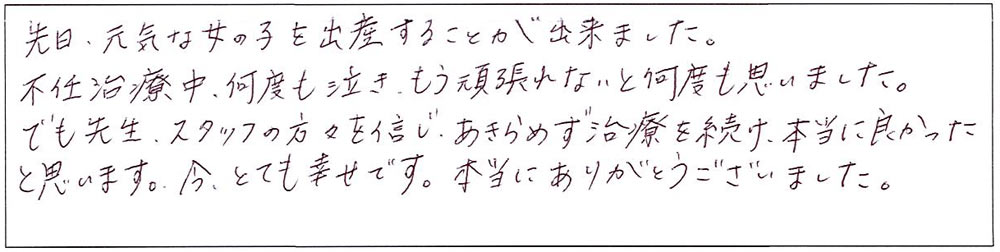 先日、元気な女の子を出産することが出来ました。
不任治療中、何度も泣き、もう頑張れないと何度も思いました。
でも先生、スタッフの方々を信じ、あきらめず治療を続け、本当に良かった
と思います。今、とても幸せです。本当にありがとうございました。